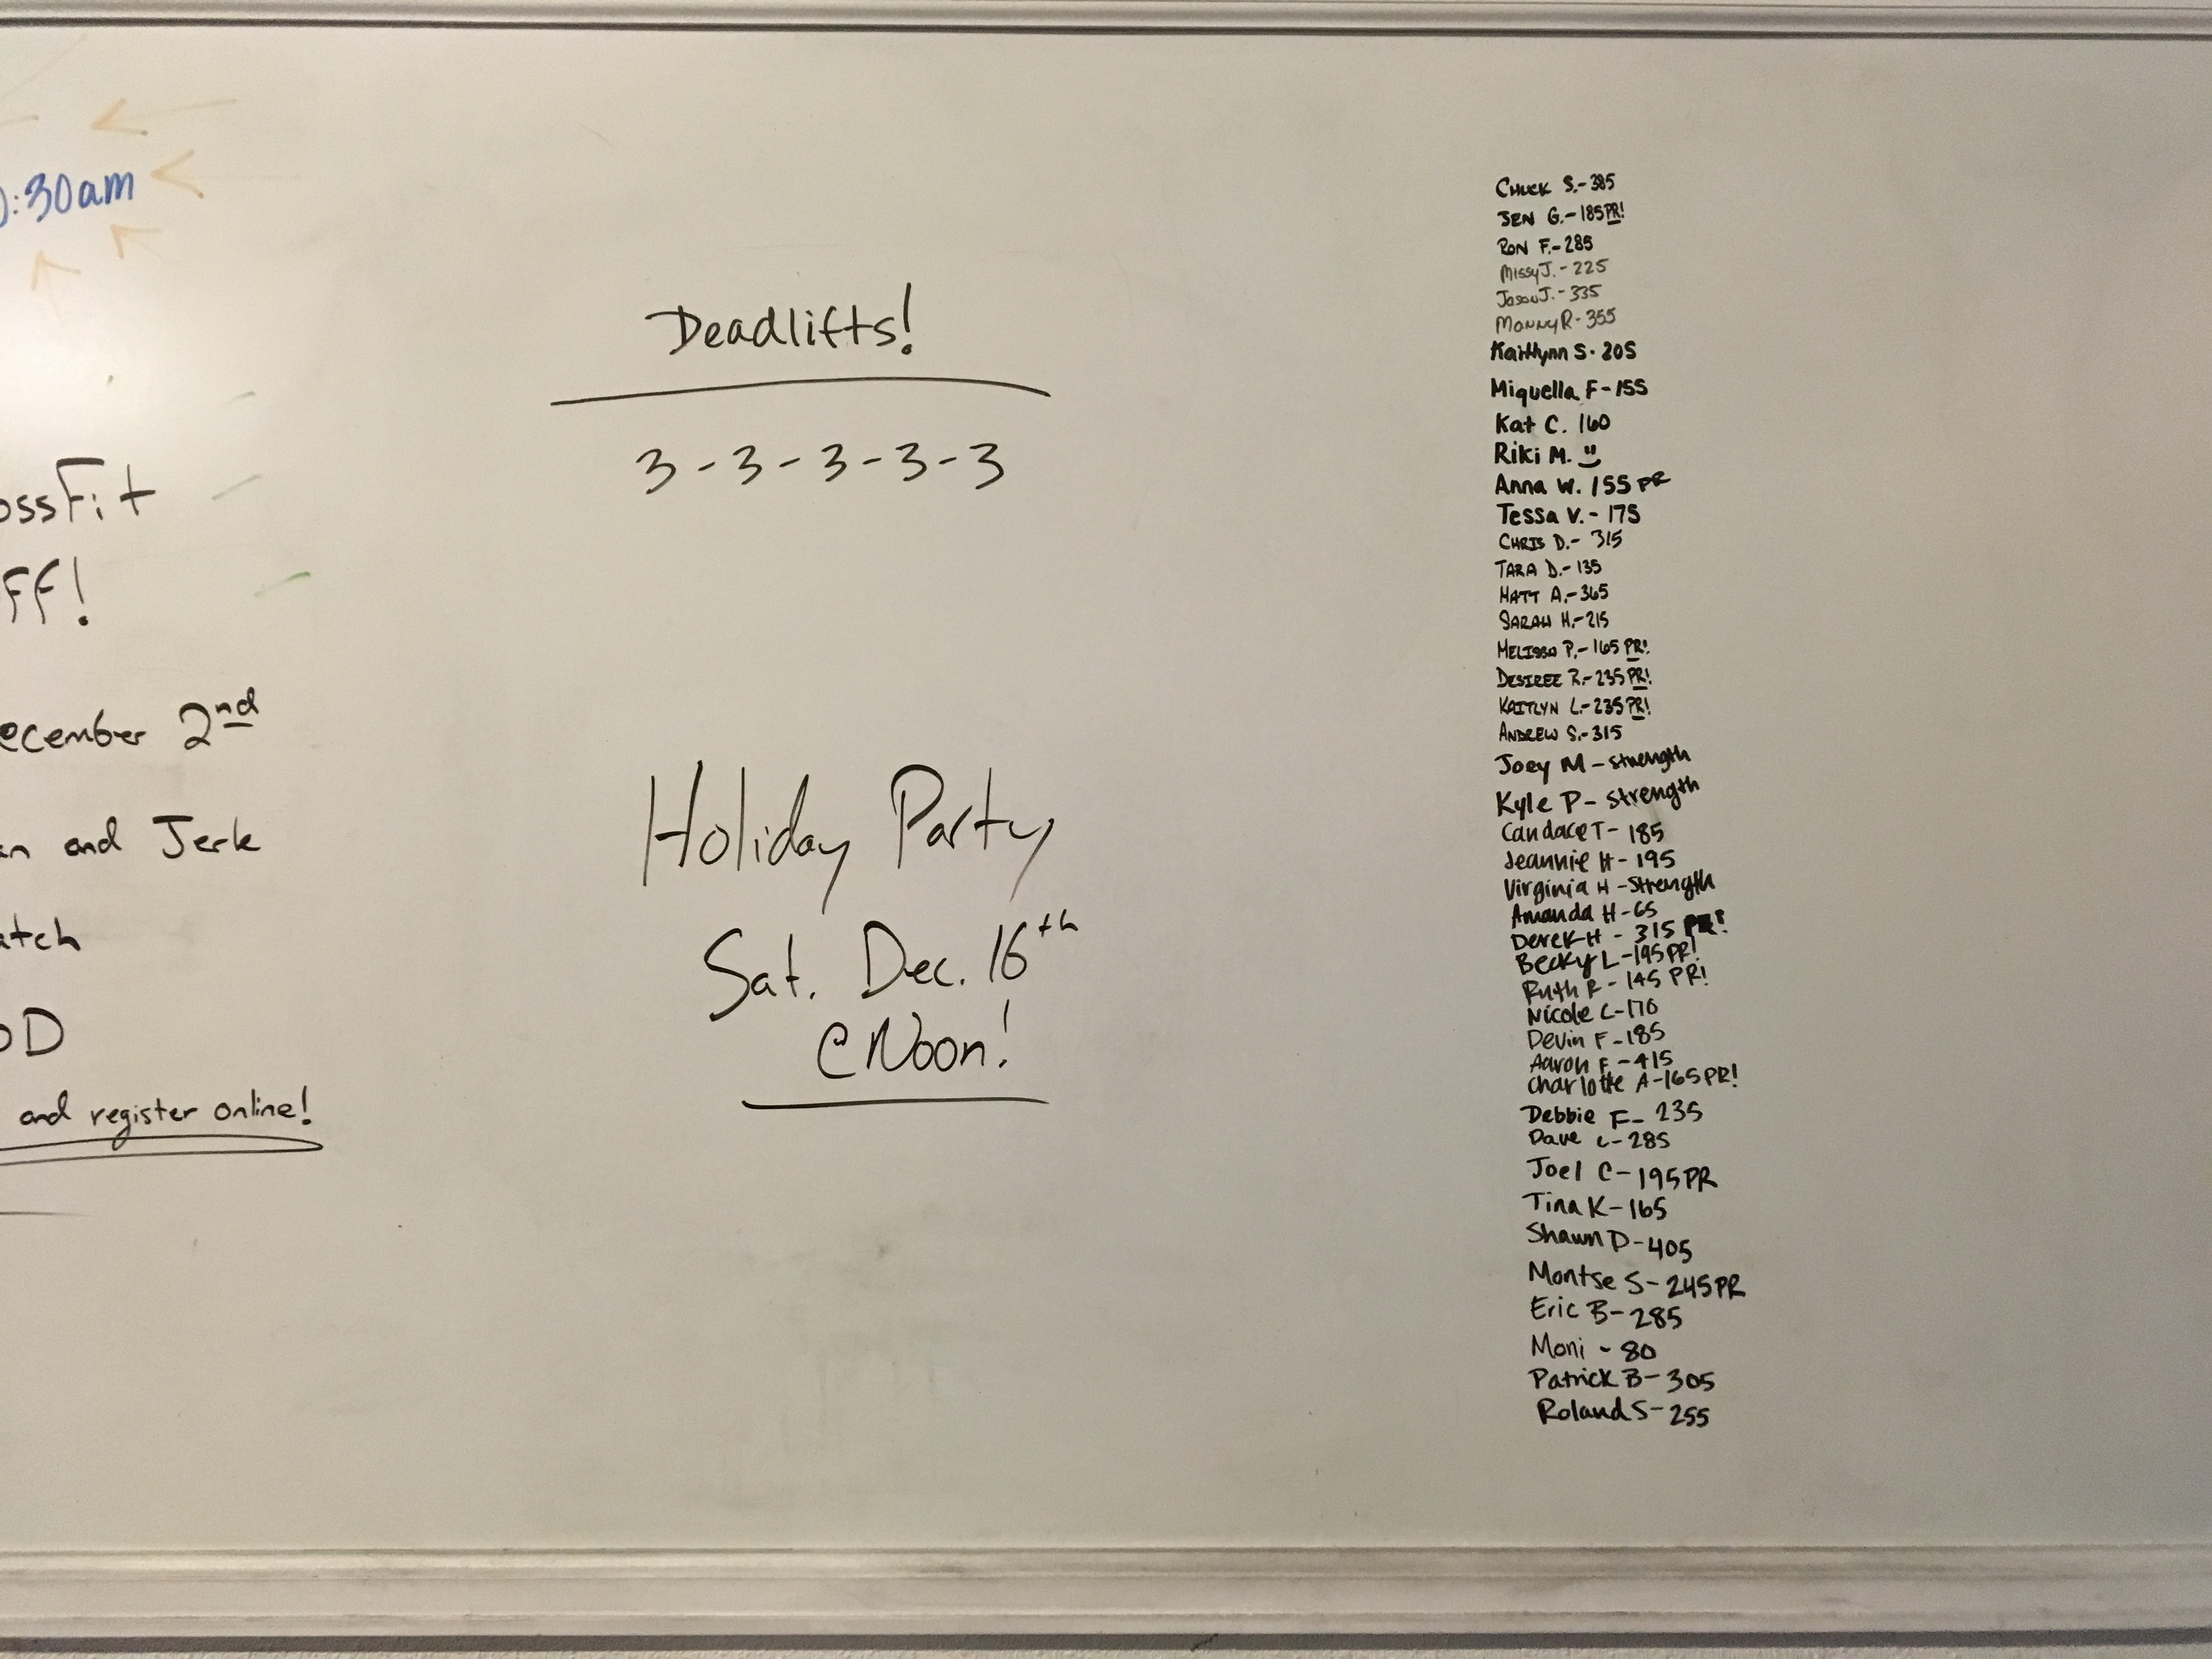 :30am
ossFit
FF!
ecember 2nd
an and Jerk
atch
OD
and register online!
Deadlifts!
3-3-3-3-3
Holiday Party
Sat. Dec. 16th
@Noon!
CHUCK S.-385
JEN G.-185PR!
RON F.-285
Missy J.-225
Jason J.-335
Manny R-355
Kaitlynn S-205
Miquella F-155
Kat C. 160
Riki M.
Anna W. 155 PR
Tessa V.-175
CHRIS D.-315
TARA D.-135
MATT A.-365
SARAH H.-215
MELISSA P.-165 PR!
DESIREE R.-235PR!
KAITLYN L.-235PR!
ANDREW S.-315
Joey M-strength
Kyle P-strength
Candace T-185
Jeannie H-195
Virginia H-strength
Amanda H-65
Derek H-315 PR!
Becky L-195PR!
Ruth R-145 PR!
Nicole C-170
Devin F-185
Aaron F-415
Charlotte A-165PR!
Debbie F-235
Dave C-285
Joel C-195PR
Tina K-165
Shawn D-405
Montse S-245PR
Eric B-285
Moni-80
Patrick B-305
Roland S-255